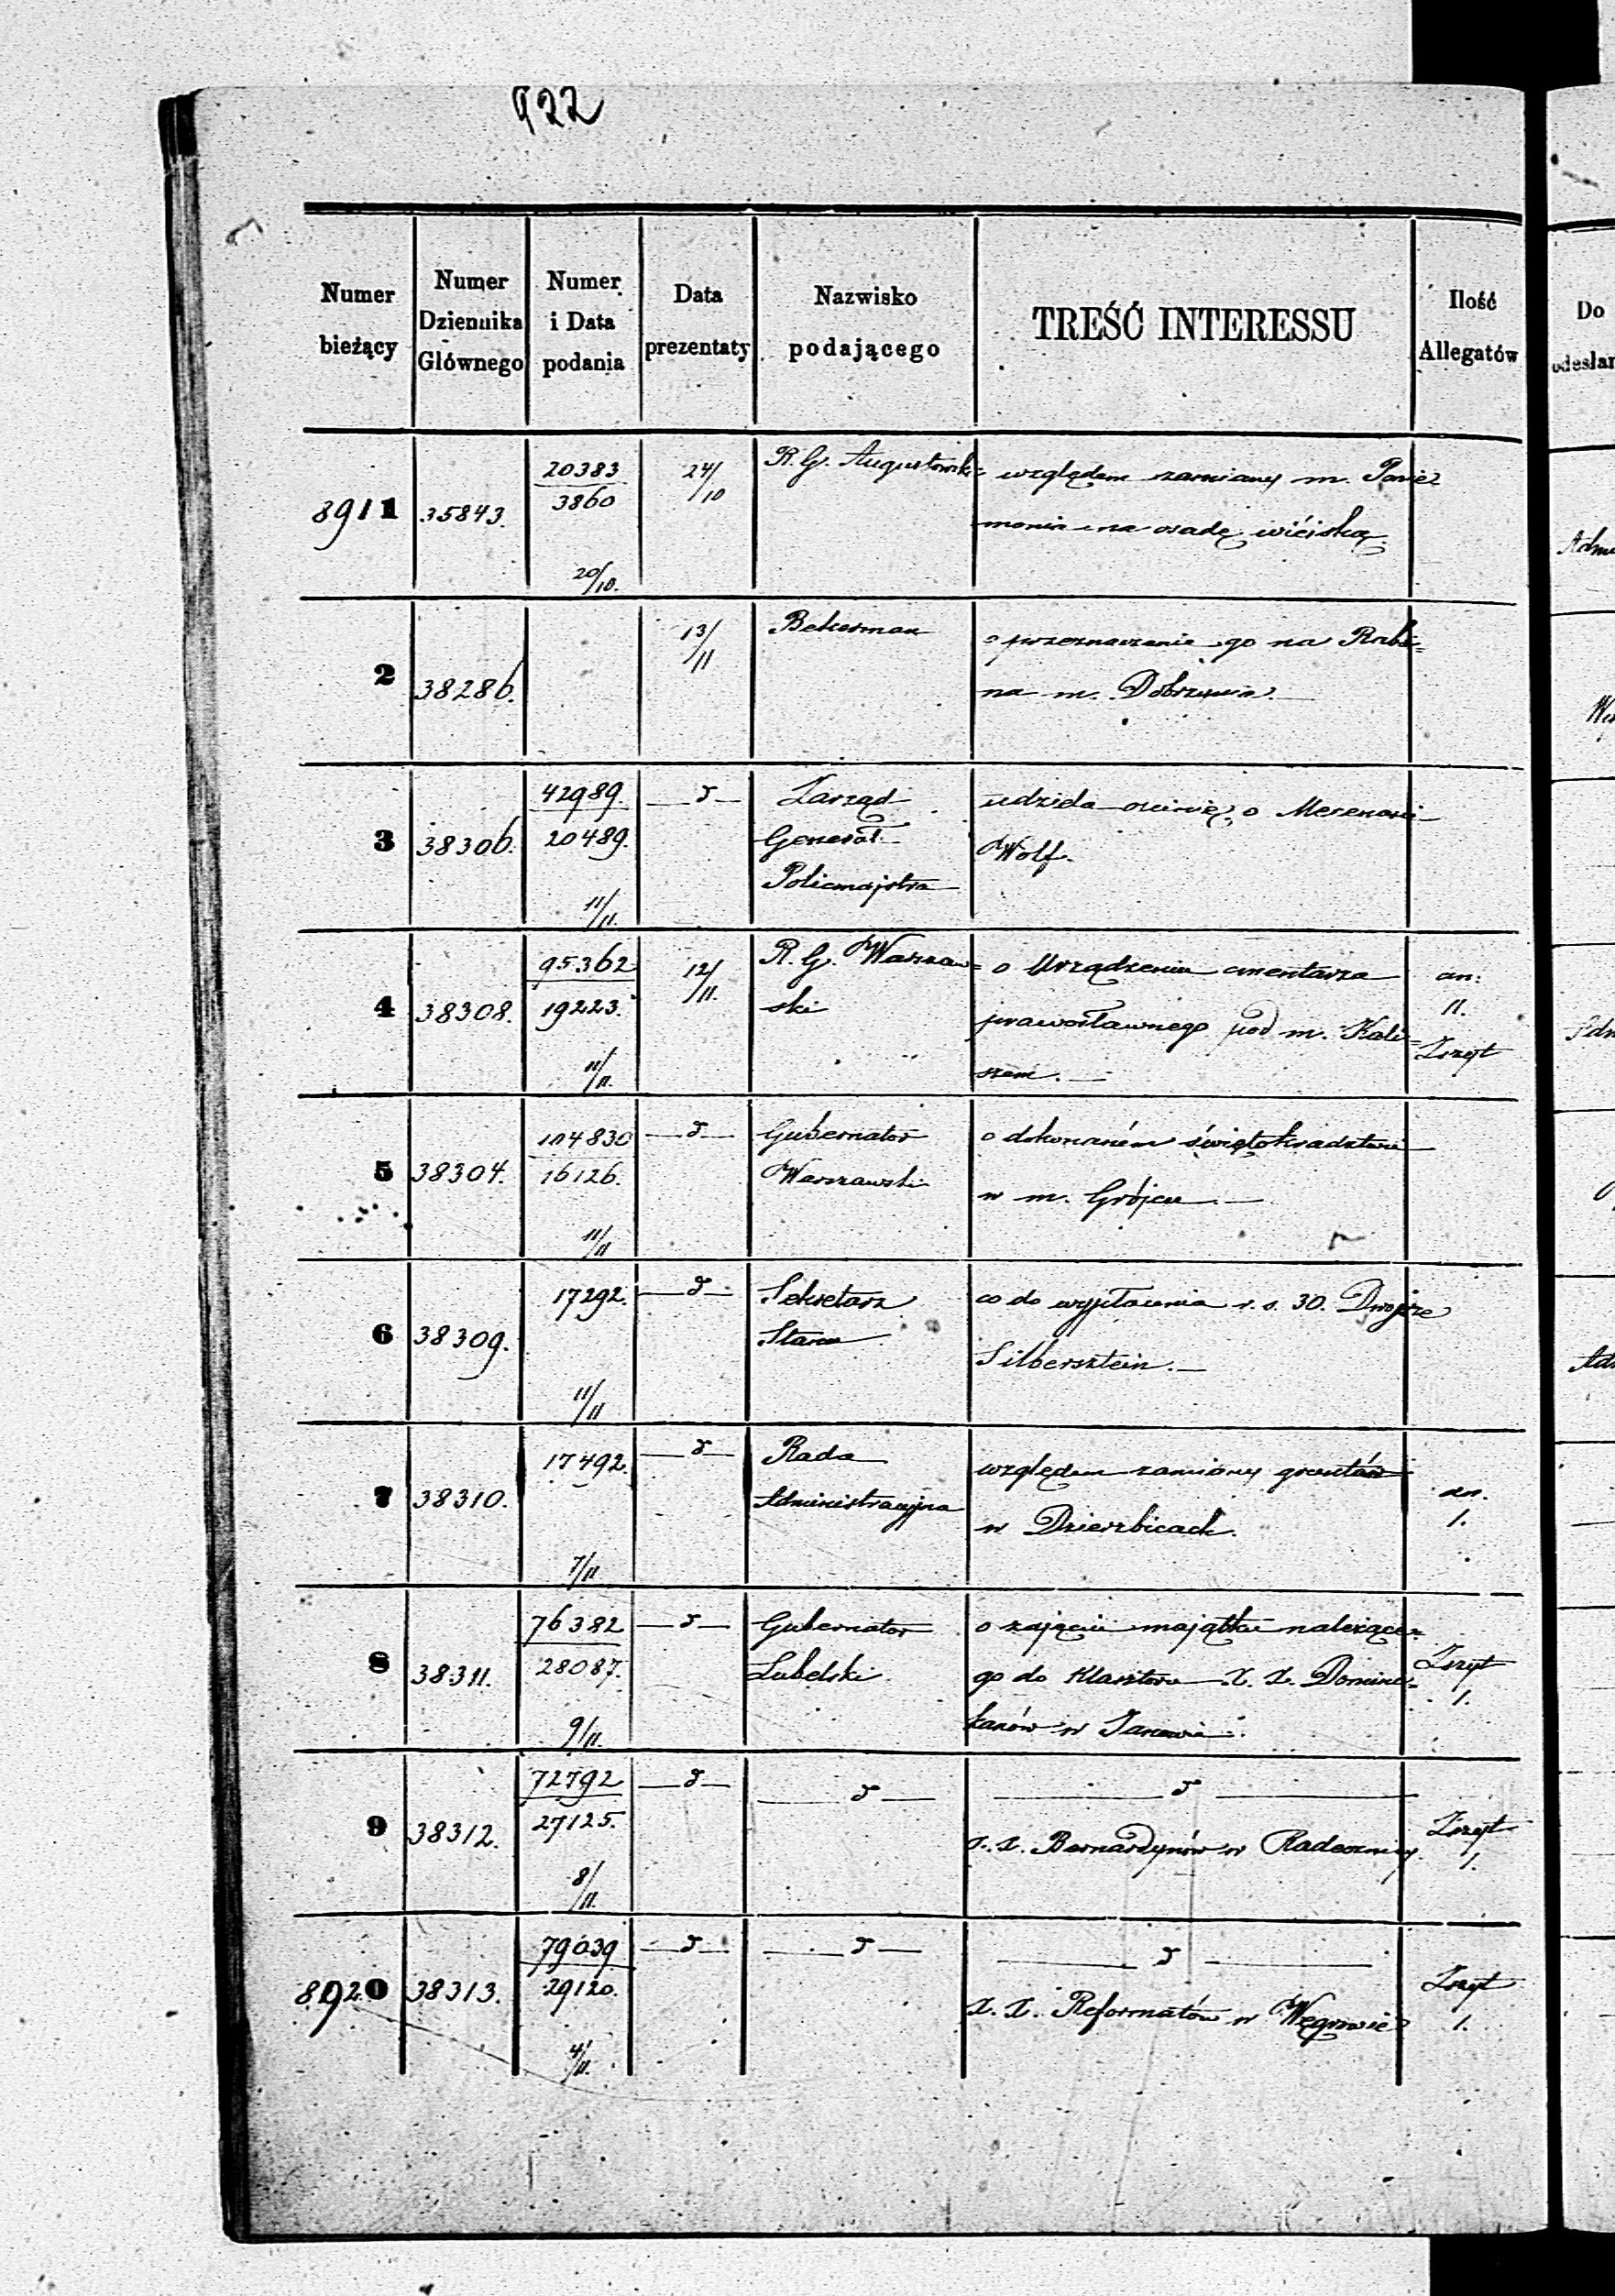 922
Numer bieżący
Numer Dziennika Głównego
Numer i Data podania
Data prezentaty
Nazwisko podającego
TREŚĆ INTERESSU
Ilość Allegatów
Do
odesłan
8911 35843. 20383 24/10 R. G. Augustowski względem zamiany m.
3860 monia na osadę wiéjską.
20/10.
2 38286. 13/11 Bekerman o przeznaczenie go na Rabi=
na m. Dobrzynia.
3 38306. 42989 d Zarząd udziela o
20489. Generał Wolf.
Policmajstra
11/11.
4 38308. 95362 12/11. R. G. Warszaw= o Urządzeniu cmentarza an:
19223. ski prawosławnego pod m. Kali= 11.
11/11. szem. Zszyt
5 38304. 104830 d Gubernator o dokonaném świętokradztwie
16126. Warszawski w m. Grójcu.
11/11
6 38309. 17292. d Sekretarz co do wypłacenia r. s. 30. Dwojrze
Stanu Silbersztein.
11/11
7 38310. 17492. d Rada względem zamiany gruntów an.
Administracyjna w Dzierzbicach. 1.
7/11
8 38311. 76382 d Gubernator o zajęciu majątku należące= Zszyt
28087. Lubelski go do Klasztoru X. X. Domini= 1.
9/11. kanów w Janowie.
9 38312. 72792 d d d Zszyt
27125. X. X. Bernardynów w Radecznicy 1.
8/11.
8920 38313. 79039 d d d Zszyt
29120. X. X. Reformatów w Węgrowie 1.
4/11.